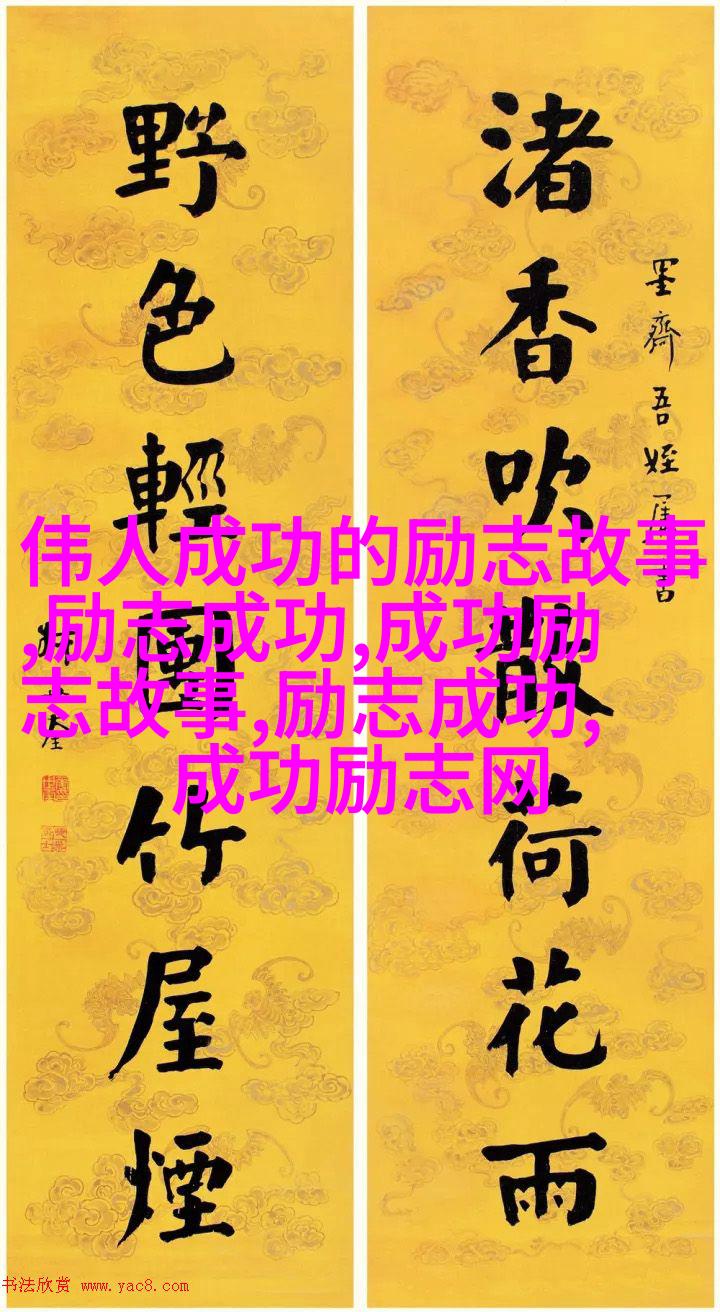 渚香吹散荷花雨
墨齋吾姪屬書
野色輕團竹屋煙
伟人成功的励志故事
,励志成功,成功励
志故事,励志成功,
成功励志网
书法欣赏 www.yac8.com